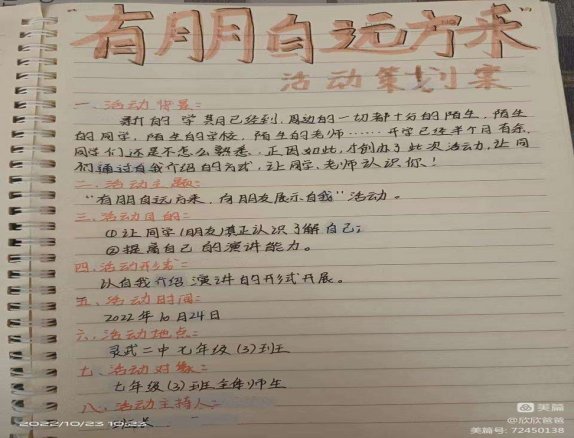 "有朋自远方来"
活动策划案
一、活动背景：
新的学期已经到，周边的一切都十分的陌生，陌生
的同学，陌生的学校，陌生的老师……开学已经半个月有余，
同学们还是不怎么熟悉，正因如此，才创办了此次活动，让同
们通过自我介绍的方式，让同学、老师认识你！
二、活动主题：
"有朋自远方来，向朋友展示自我"活动。
三、活动目的：
①让同学(朋友)真正认识了解自己；
②提属自己的演讲能力。
四、活动形式：
以自我介绍演讲的形式开展。
五、活动时间：
2022年10月24日
六、活动地点：
灵武二中七年级(3)班
七、活动对象：
七年级(3)班全体师生
八、活动主持人：
2022/10/23 10:23
美篇
@欣欣爸爸
美篇号: 72450138